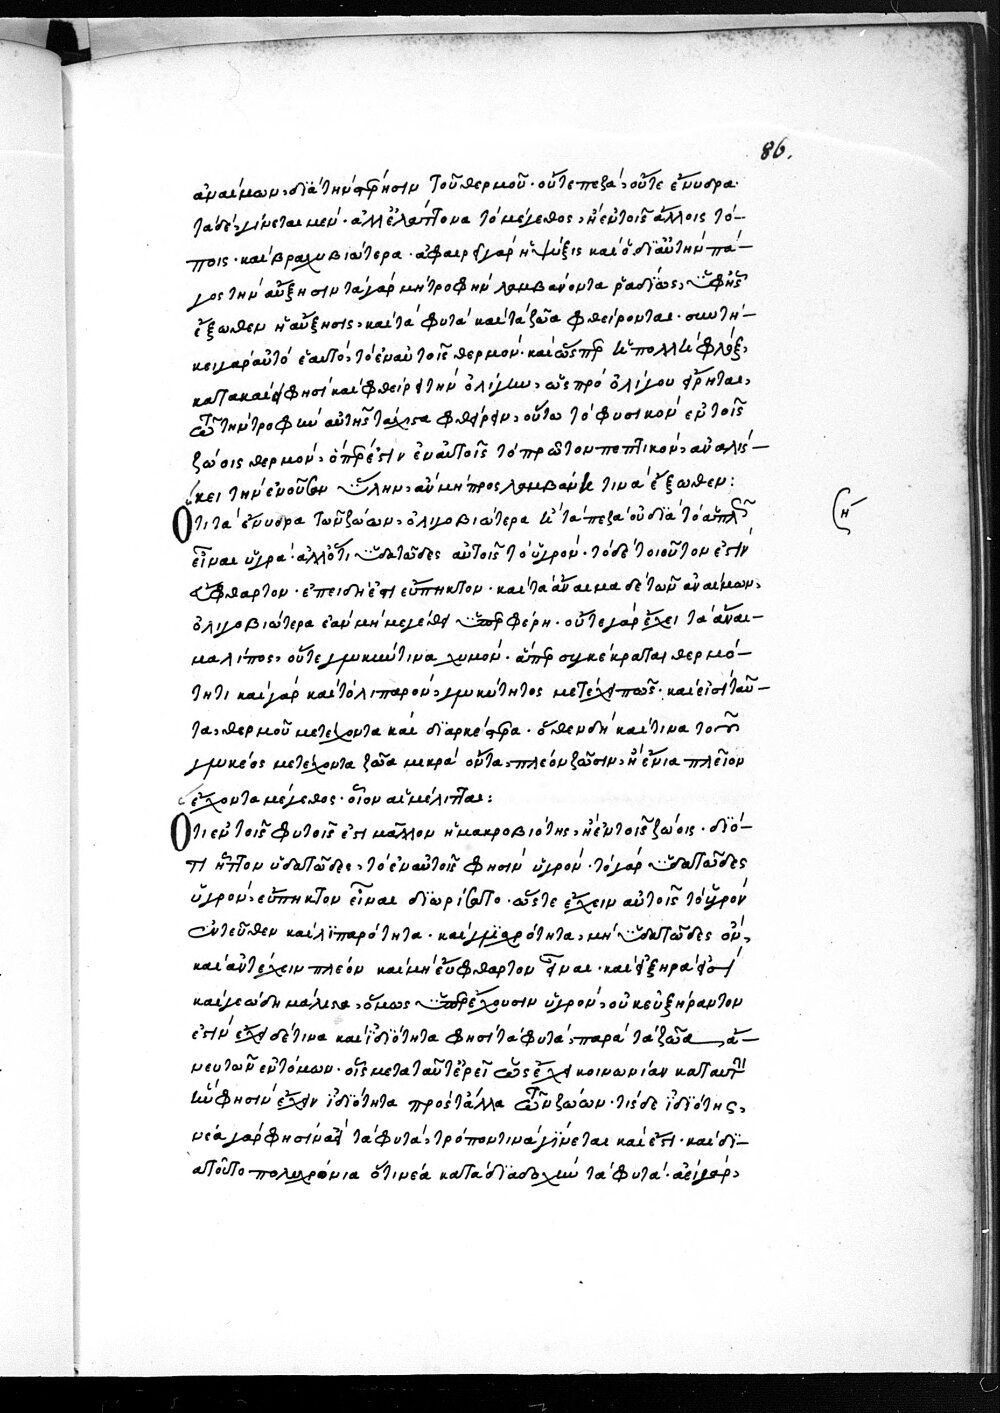 86.
ἀναίμων, διὰ τὴν τήρησιν τοῦ θερμοῦ· οὔτε πεζὰ, οὔτε ἔνυδρα·
τὰ δὲ, γίνεται μὲν· ἀλλ' ἐλάττονα τὸ μέγεθος, ἢ ἐν τοῖς ἄλλοις τό-
ποις· καὶ βραχυβιώτερα· ἀφαιρεῖ γὰρ ἡ ψύξις καὶ ὁ δι' αὐτὴν πά-
γος τὴν αὔξησιν τὰ γὰρ μὴ τροφὴν λαμβάνοντα ῥαδίως, ὑφ' ἧς
ἔξωθεν ἡ αὔξησις, καὶ τὰ φυτὰ καὶ τὰ ζῶα φθείρονται· συντή-
κει γὰρ αὐτὸ ἑαυτὸ, τὸ ἐν αὐτοῖς θερμόν· καὶ ὥσπερ ἡ πολλὴ φλὸξ,
κατακαίει φησὶ καὶ φθείρει τὴν ὀλίγην, ὡς πρὸ ὀλίγου εἴρηται,
τῷ τὴν τροφὴν αὐτῆς τάχιστα φθείρειν, οὕτω τὸ φυσικὸν ἐν τοῖς
ζώοις θερμὸν, ὅπερ ἐστὶν ἐν αὐτοῖς τὸ πρῶτον πεπτικὸν, ἀναλίσ-
κει τὴν ἐνοῦσαν ὕλην, ἂν μὴ προσλαμβάνῃ τινὰ ἔξωθεν:
Ὅτι τὰ ἔνυδρα τῶν ζώων, ὀλιγοβιώτερα ἢ τὰ πεζὰ οὐ διὰ τὸ ἁπλῶς
εἶναι ὑγρὰ· ἀλλ' ὅτι ὑδατῶδες αὐτοῖς τὸ ὑγρόν· τὸ δὲ τοιοῦτον ἐστὶν
εὔφθαρτον· ἐπειδή ἐστι εὔπηκτον· καὶ τὰ ἄναιμα δὲ τῶν ἀναίμων,
ὀλιγοβιώτερα ἐὰν μὴ μεγέθει ὑπερφέρῃ· οὔτε γὰρ ἔχει τὰ ἄναι-
μα λίπος, οὔτε γλυκύν τινα χυμόν· ἅπερ συγκέκραται θερμό-
τητι καὶ γὰρ καὶ τὸ λιπαρὸν, γλυκύτητος μετέχει πως· καὶ εἰσὶ ταῦ-
τα, θερμοῦ μετέχοντα καὶ διαρκέστερα· ὅθεν δὴ καί τινα τοῦ
γλυκέος μετέχοντα ζῶα μικρὰ ὄντα, πλέον ζῶσιν, ἢ ἔνια πλεῖον
ἔχοντα μέγεθος· οἷον αἱ μέλιτται:
Ὅτι ἐν τοῖς φυτοῖς ἐστι μᾶλλον ἡ μακροβιότης, ἢ ἐν τοῖς ζώοις· διό-
τι ἧττον ὑδατῶδες, τὸ ἐν αὐτοῖς φησὶν ὑγρόν· τὸ γὰρ ὑδατῶδες
ὑγρὸν, εὔπηκτον εἶναι διωρίσατο· ὥστε ἔχειν αὐτοῖς τὸ ὑγρὸν
ἐντεῦθεν καὶ λιπαρότητα· καὶ γλισχρότητα, μὴ ὑδατῶδες ὂν,
καὶ ἀντέχειν πλέον καὶ μὴ εὔφθαρτον εἶναι· καὶ εἰ ξηρά ἐστι
καὶ γεώδη μάλιστα, ὅμως ὑπερέχουσιν ὑγρὸν, οὐκ εὐξήραντον
ἐστὶν ἔχει δέ τινα καὶ ἰδιότητα φησὶ τὰ φυτὰ, παρὰ τὰ ζῶα ἄ-
νευ τῶν ἐντόμων· οἷς μετὰ ταῦτ' ἐρεῖ ὡς ἔχει κοινωνίαν κατὰ ταύτην
ἣν φησὶν ἔχειν ἰδιότητα πρὸς τἆλλα τῶν ζώων· τίς δὲ ἰδιότης,
νέα γὰρ φησὶν ἀεὶ τὰ φυτὰ, τρόπον τινὰ γίνεται καὶ ἔστι· καὶ δι-
α τοῦτο πολυχρόνια ὅτι νέα κατὰ διαδοχὴν τὰ φυτά· ἀεὶ γὰρ,